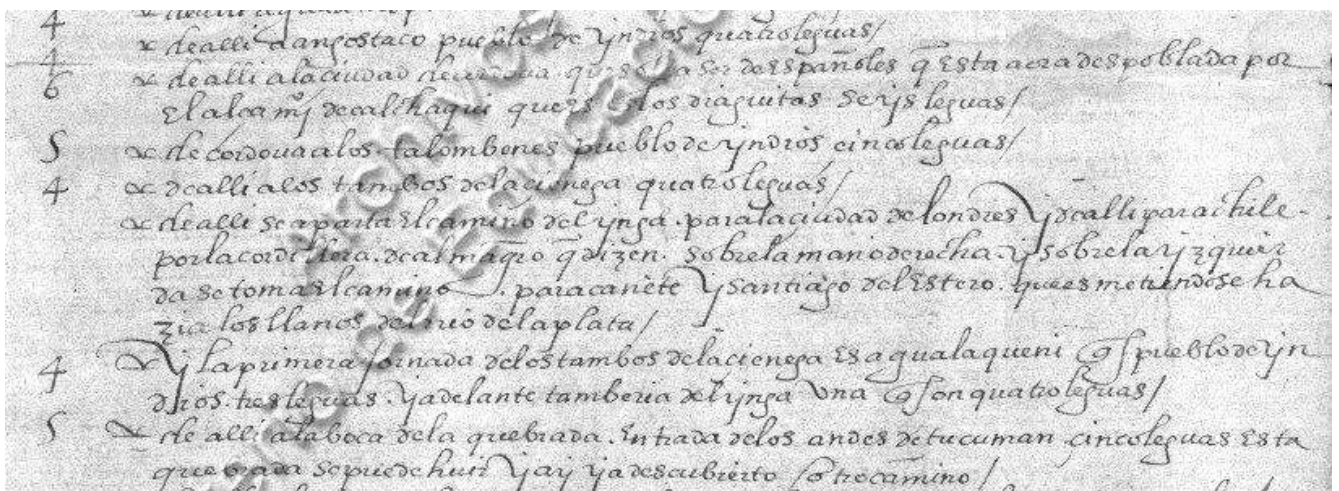 4
4 de alli a angostaco pueblo de yndios quatro leguas/
6 de alli a la ciudad de cordova ques solia ser de españoles q esta aora despoblada por
El alcamj de calchaqui ques En los diaguitas seys leguas/
5 de cordova a los talombones pueblo de yndios cinco leguas/
4 de alli a los tambos de la cienega quatro leguas/
de alli se aparta El camino del ynga. para la ciudad de londres y de alli para chile.
por la cordillera. de almagro q dizen. sobre la mano derecha. y sobre la yzquier
da se toma El camino . para cañete y santiago del Estero. ques metiendose ha
zia los llanos del rrio de la plata/
4 y la primera jornada de los tambos de la cienega Es a gualaqueni pueblo de yn
dios. tres leguas. y adelante tamberia del ynga Una q son quatro leguas/
5 de alli a la boca de la quebrada. Entrada de los andes de tucuman cinco leguas Esta
quebrada se puede huir y ay ya descubierto otro camino/